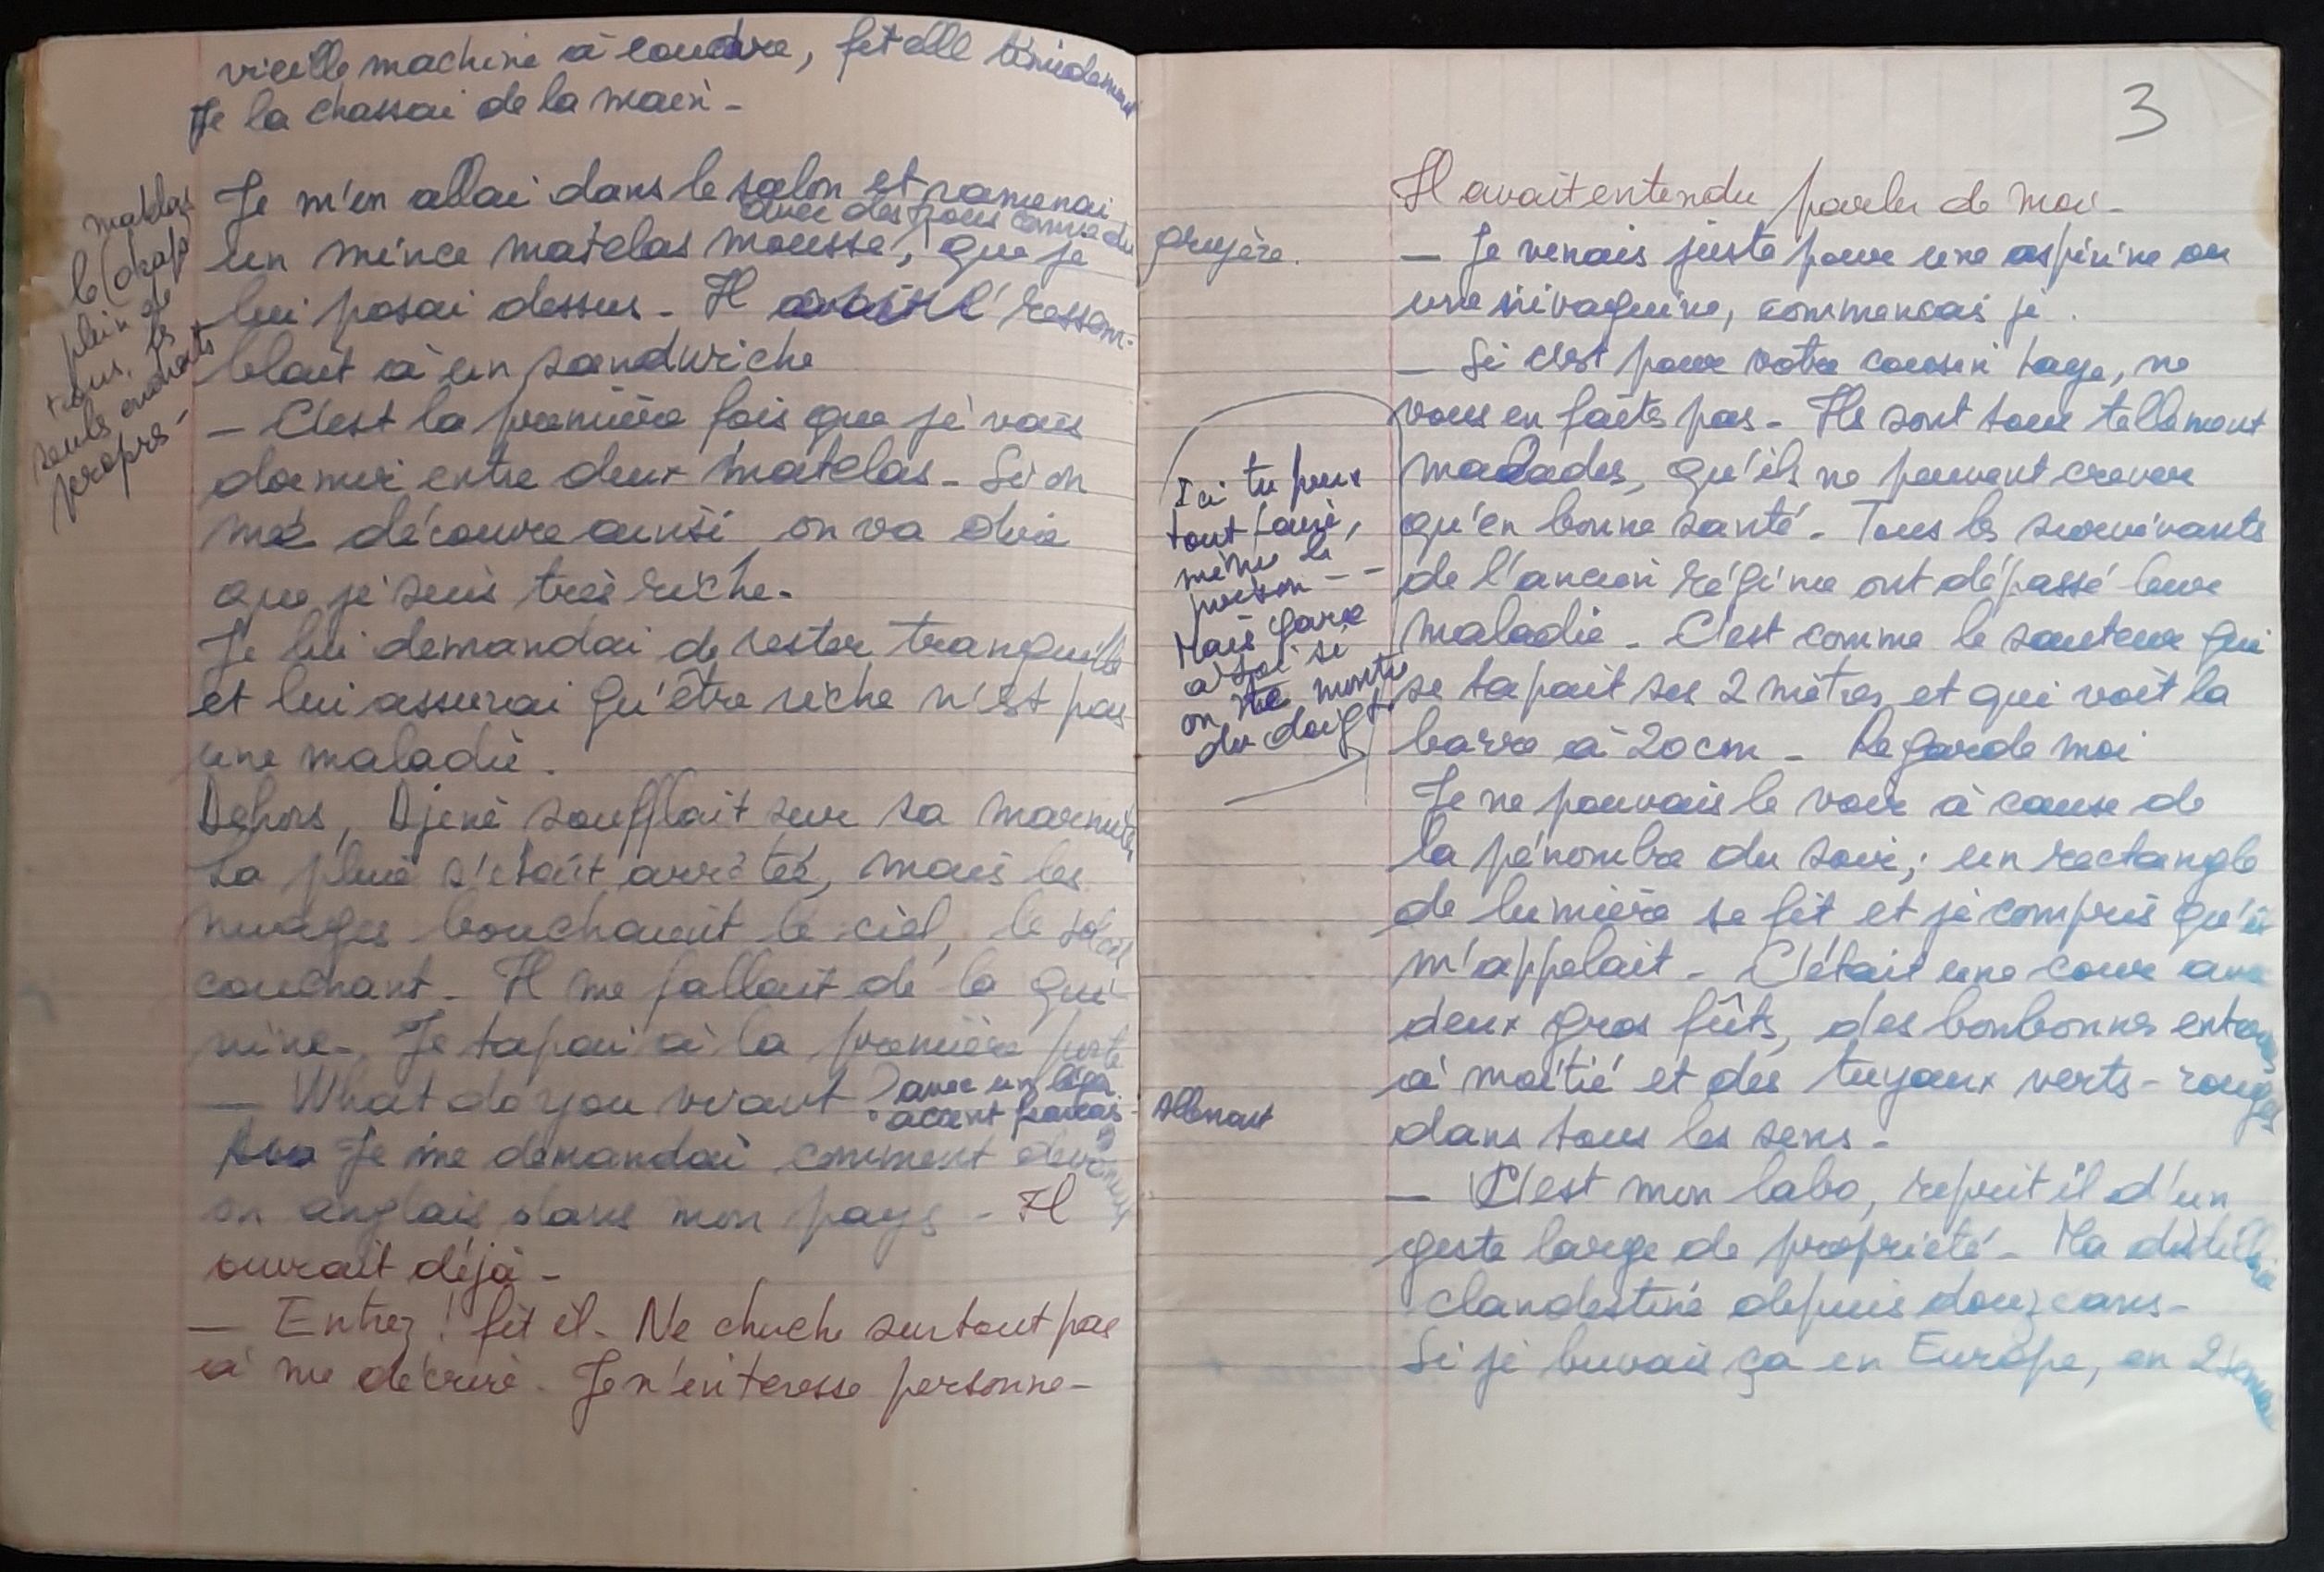 vieille machine à coudre, fit elle timidement
Je la chassai de la main -
Je m'en allai dans le salon et ramenai
avec des trous comme du
gruyère.
un mince matelas mousse, que je
lui posai dessus - Il ressem-
blait à un sandwiche
matelas
le (drap
plein de
trous, les
seuls endroits
propres -
- C'est la première fois que je vais
dormir entre deux matelas - Si on
me découvre ainsi on va dire
que je suis très riche -
Je lui demandai de rester tranquille
et lui assurai qu'être riche n'est pas
une maladie.
Dehors, Djéné soufflait sur sa marmite
La pluie s'était arrêtée, mais les
nuages bouchaient le ciel, le soleil
couchant - Il me fallait de la qui-
nine - Je tapai à la première porte
- What do you want ? avec un léger
accent français -
Allemand
Je me demandai comment devenir
en anglais dans mon pays - Il
ouvrait déjà -
- Entrez ! fit il - Ne cherche surtout pas
à me décrire. Je n'interesse personne -
3
Il avait entendu parler de moi -
- Je venais juste pour une aspirine ou
une nivaquine, commencais je.
- Si c'est pour votre cousin Laye, ne
vous en faites pas - Ils sont tous tellement
malades, qu'ils ne peuvent crever
qu'en bonne santé - Tous les survivants
de l'ancien régime ont dépassé leur
maladie - C'est comme le sauteur qui
se tapait ses 2 mètres et qui voit la
barre à 20 cm - Regarde moi
Ici tu peux
tout faire,
même le
poison - -
Mais gare
à toi si
on te montre
du doigt
Je ne pouvais le voir à cause de
la pénombre du soir ; un rectangle
de lumière se fit et je compris qu'il
m'appelait - C'était une cour avec
deux gros fûts, des bonbonnes enterrées
à moitié et des tuyaux verts - rouges
dans tous les sens -
- C'est mon labo, reprit il d'un
geste large de propriété - Ma distillerie
clandestine depuis douze ans -
Si je buvais ça en Europe, en 2 semaines